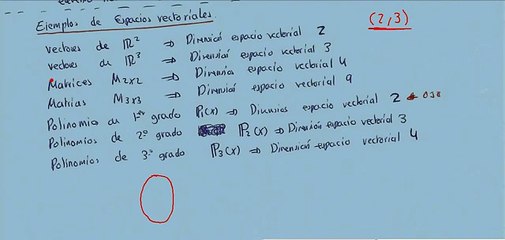 Ejemplos de Espacios vectoriales.
(2,3)
vectores de ℝ² ⇒ Dimensión espacio vectorial 2
vectores de ℝ³ ⇒ Dimensión espacio vectorial 3
Matrices M2x2 ⇒ Dimensión espacio vectorial 4
Matrias M3x3 ⇒ Dimensión espacio vectorial 9
Polinomio de 1er grado P₁(x) ⇒ Dimension espacio vectorial 2
Polinomios de 2º grado P₂(x) ⇒ Dimensión espacio vectorial 3
Polinomios de 3er grado P₃(x) ⇒ Dimensión espacio vectorial 4